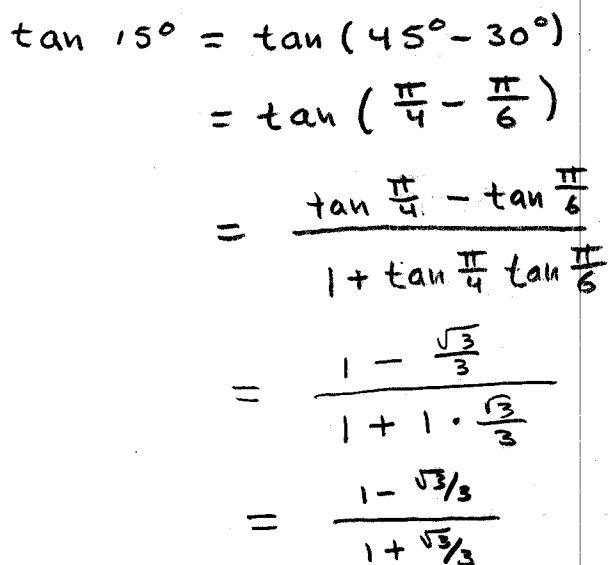 tan 15° = tan (45° - 30°)
= tan (π/4 - π/6)
= (tan π/4 - tan π/6) / (1 + tan π/4 tan π/6)
= (1 - √3/3) / (1 + 1 · √3/3)
= (1 - √3/3) / (1 + √3/3)